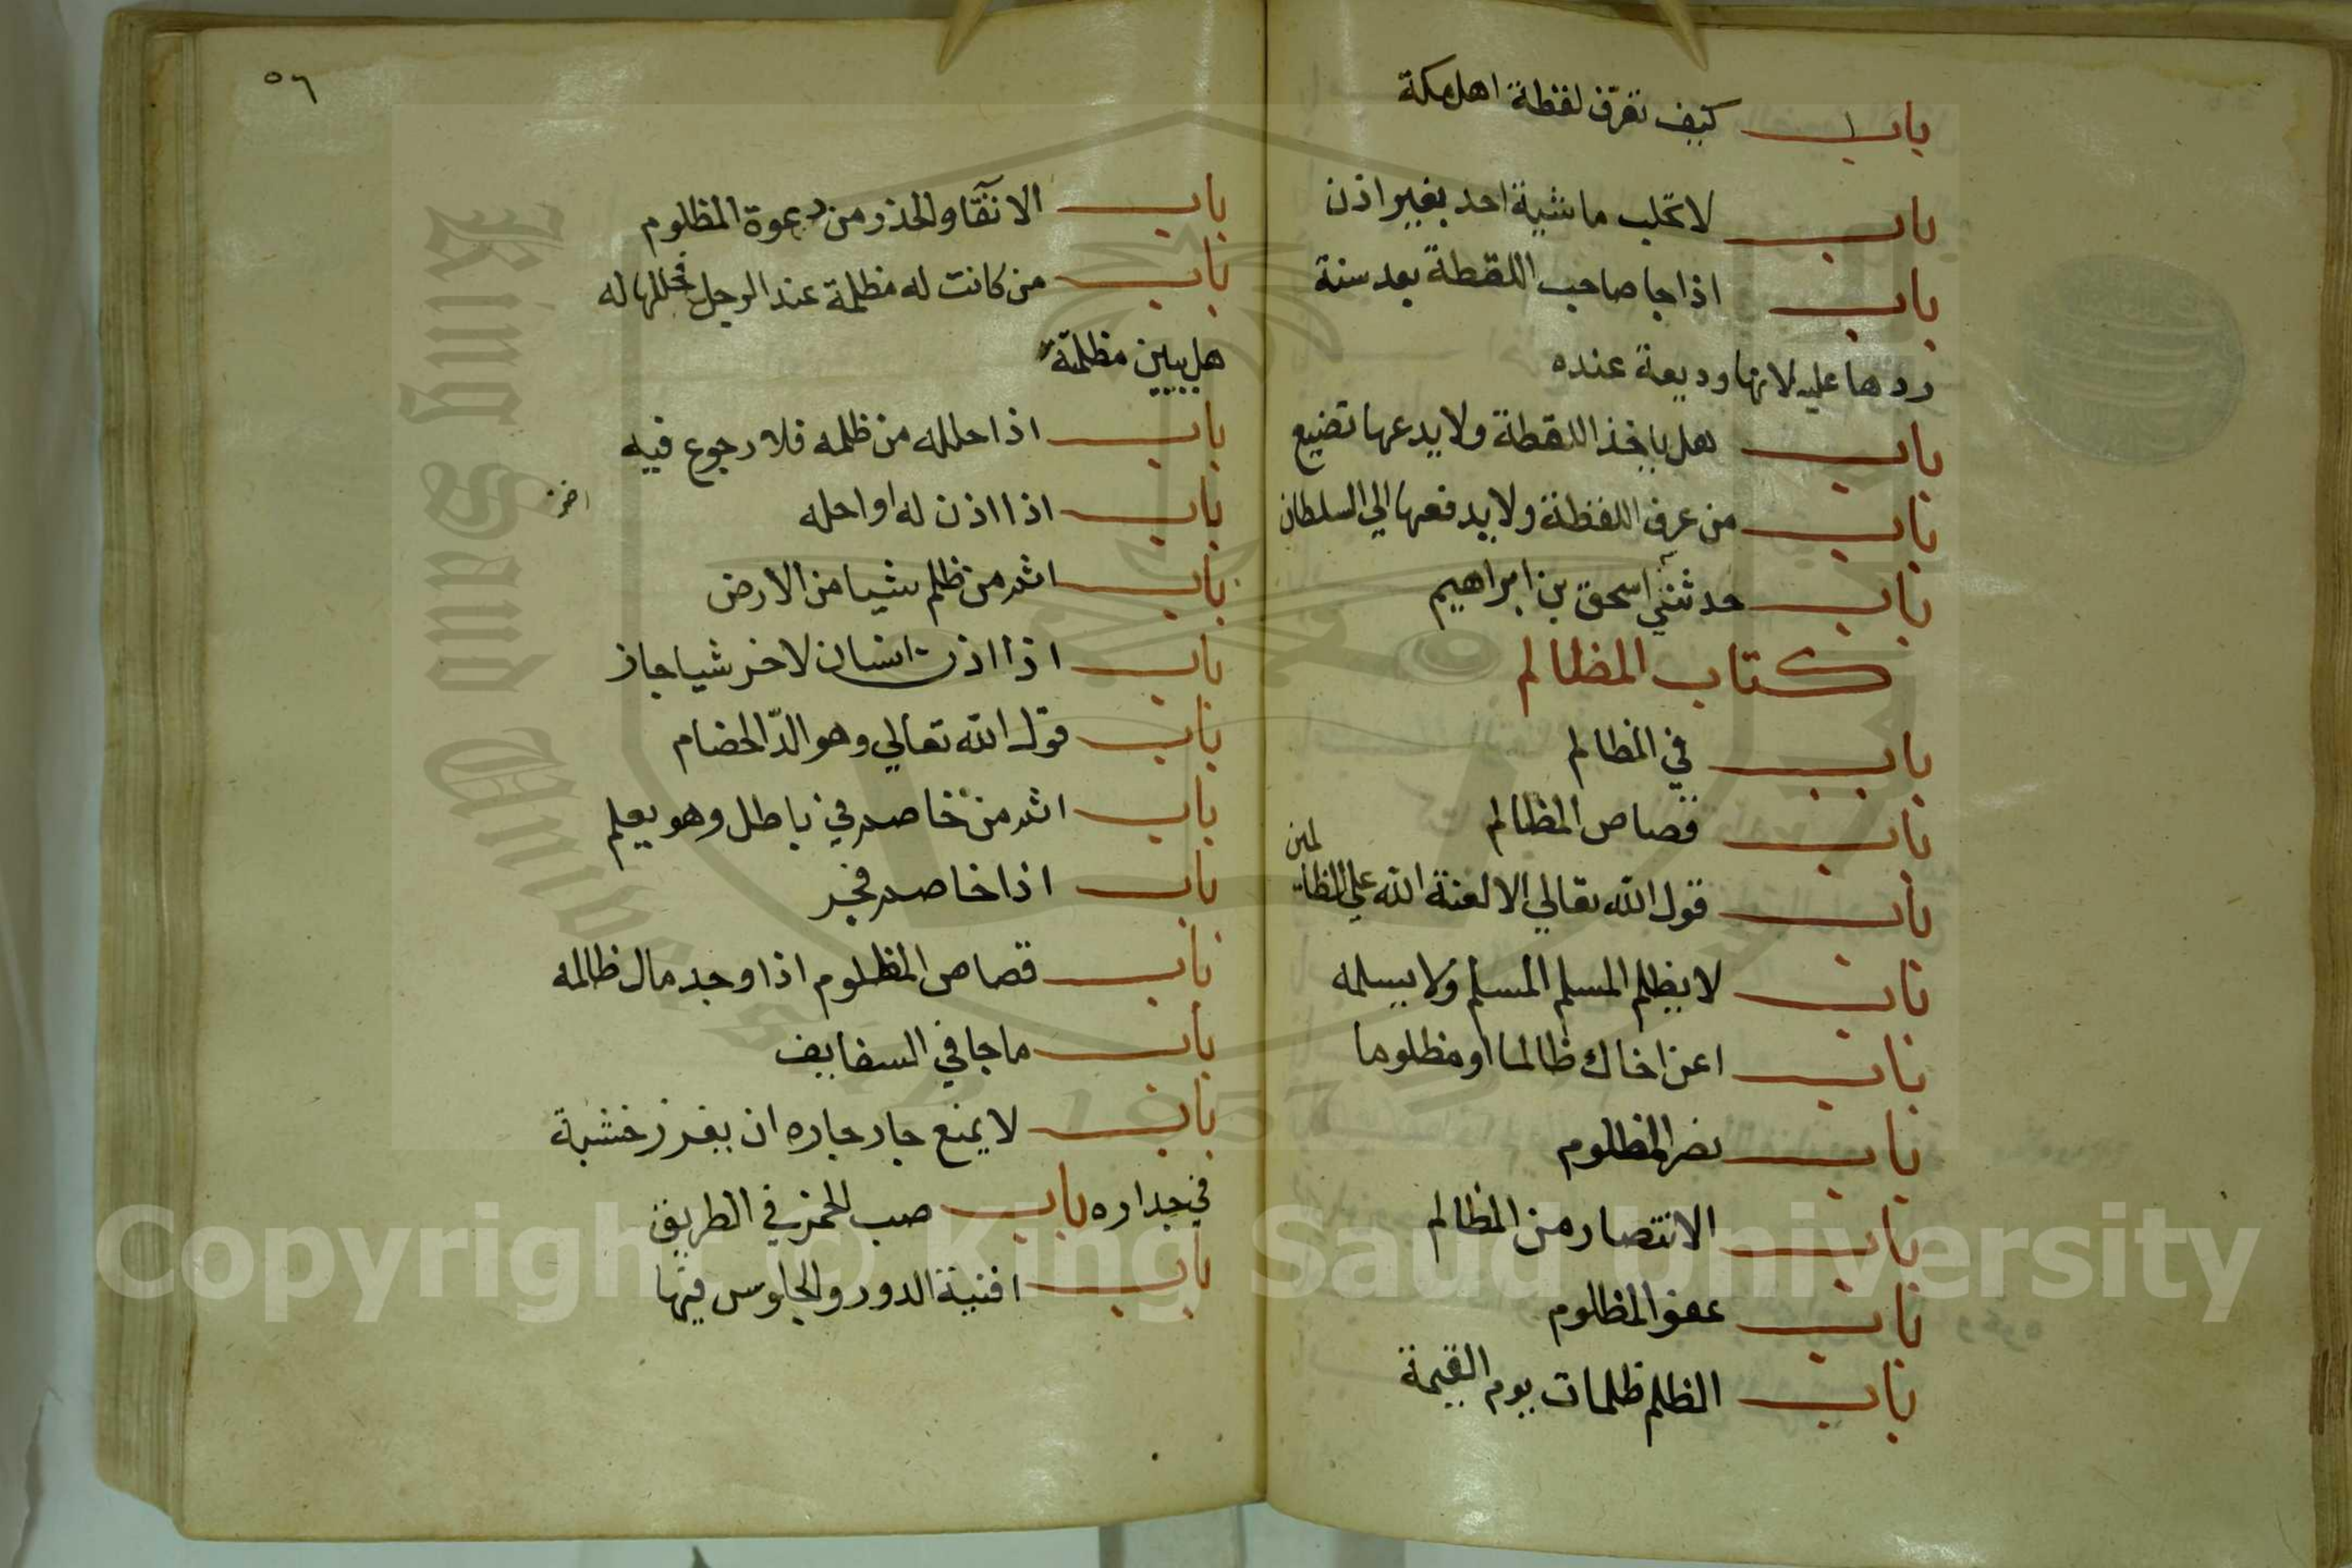 باب كيف تعرف لقطة اهل مكة
باب لا تحلب ماشية احد بغير اذن
باب اذا جا صاحب اللقطة بعد سنة
ردها عليه لانها وديعة عنده
باب هل ياخذ اللقطة ولا يدعها تضيع
باب من عرف اللقطة ولا يدفعها الي السلطان
باب حدثني اسحق بن ابراهيم
كتاب المظالم
باب في المظالم
باب قصاص المظالم
باب قول الله تعالي الا لعنة الله علي الظالمين
باب لا يظلم المسلم المسلم ولا يسلمه
باب اعن اخاك ظالما او مظلوما
باب نصر المظلوم
باب الانتصار من الظالم
باب عفو المظلوم
باب الظلم ظلمات يوم القيمة
٥٦
باب الاتقا والحذر من دعوة المظلوم
باب من كانت له مظلمة عند الرجل فحللها له
هل يبين مظلمته
باب اذا حلله من ظلمه فلا رجوع فيه
باب اذا اذن له او احله
باب اثم من ظلم شيا من الارض
باب اذا اذن انسان لاخر شيا جاز
باب قول الله تعالي وهو الدّ الخصام
باب اثم من خاصم في باطل وهو يعلم
باب اذا خاصم فجر
باب قصاص المظلوم اذا وجد مال ظالمه
باب ما جا في السقايف
باب لا يمنع جار جاره ان يغرز خشبة
في جداره باب صب الخمر في الطريق
باب افنية الدور والجلوس فيها
King Saud University
1957
Copyright © King Saud University